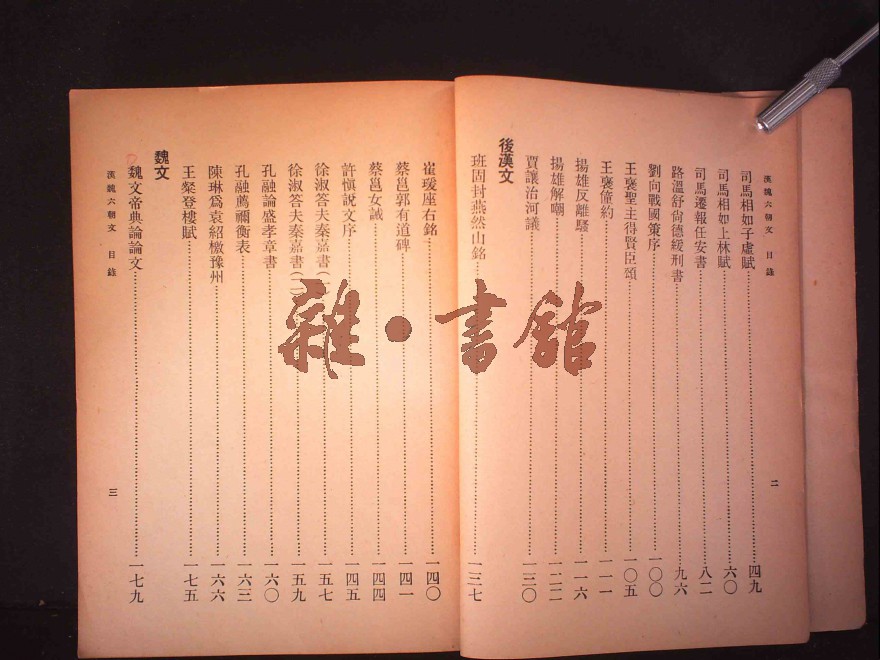 漢魏六朝文 目錄
二
司馬相如子虛賦……四九
司馬相如上林賦……六〇
司馬遷報任安書……八二
路溫舒尙德緩刑書……九六
劉向戰國策序……一〇〇
王襃聖主得賢臣頌……一〇五
王襃僮約……一一一
揚雄反離騷……一一六
揚雄解嘲……一二二
賈讓治河議……一三〇
後漢文
班固封燕然山銘……一三七
崔瑗座右銘……一四〇
蔡邕郭有道碑……一四一
蔡邕女誡……一四四
許愼說文序……一四五
徐淑答夫秦嘉書……一五七
徐淑答夫秦嘉書……一五九
孔融論盛孝章書……一六〇
孔融薦禰衡表……一六三
陳琳爲袁紹檄豫州……一六六
王粲登樓賦……一七五
魏文
魏文帝典論論文……一七九
漢魏六朝文 目錄
三
雜·書館